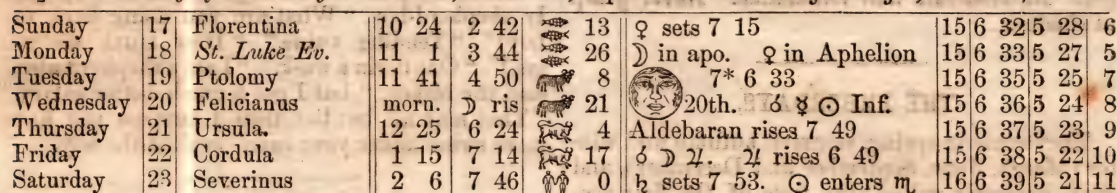 Sunday 17 Florentina 10 24 2 42 ♓ 13 ♀ sets 7 15 15 6 32 5 28 6
Monday 18 St. Luke Ev. 11 1 3 44 ♓ 26 ☽ in apo. ♀ in Aphelion 15 6 33 5 27 5
Tuesday 19 Ptolomy 11 41 4 50 ♈ 8 7* 6 33 15 6 35 5 25 7
Wednesday 20 Felicianus morn. ☽ ris ♈ 21 20th. ☌ ☿ ☉ Inf. 15 6 36 5 24 8
Thursday 21 Ursula. 12 25 6 24 ♉ 4 Aldebaran rises 7 49 15 6 37 5 23 9
Friday 22 Cordula 1 15 7 14 ♉ 17 ☌ ☽ ♃. ♃ rises 6 49 15 6 38 5 22 10
Saturday 23 Severinus 2 6 7 46 ♊ 0 ♄ sets 7 53. ☉ enters ♏ 16 6 39 5 21 11